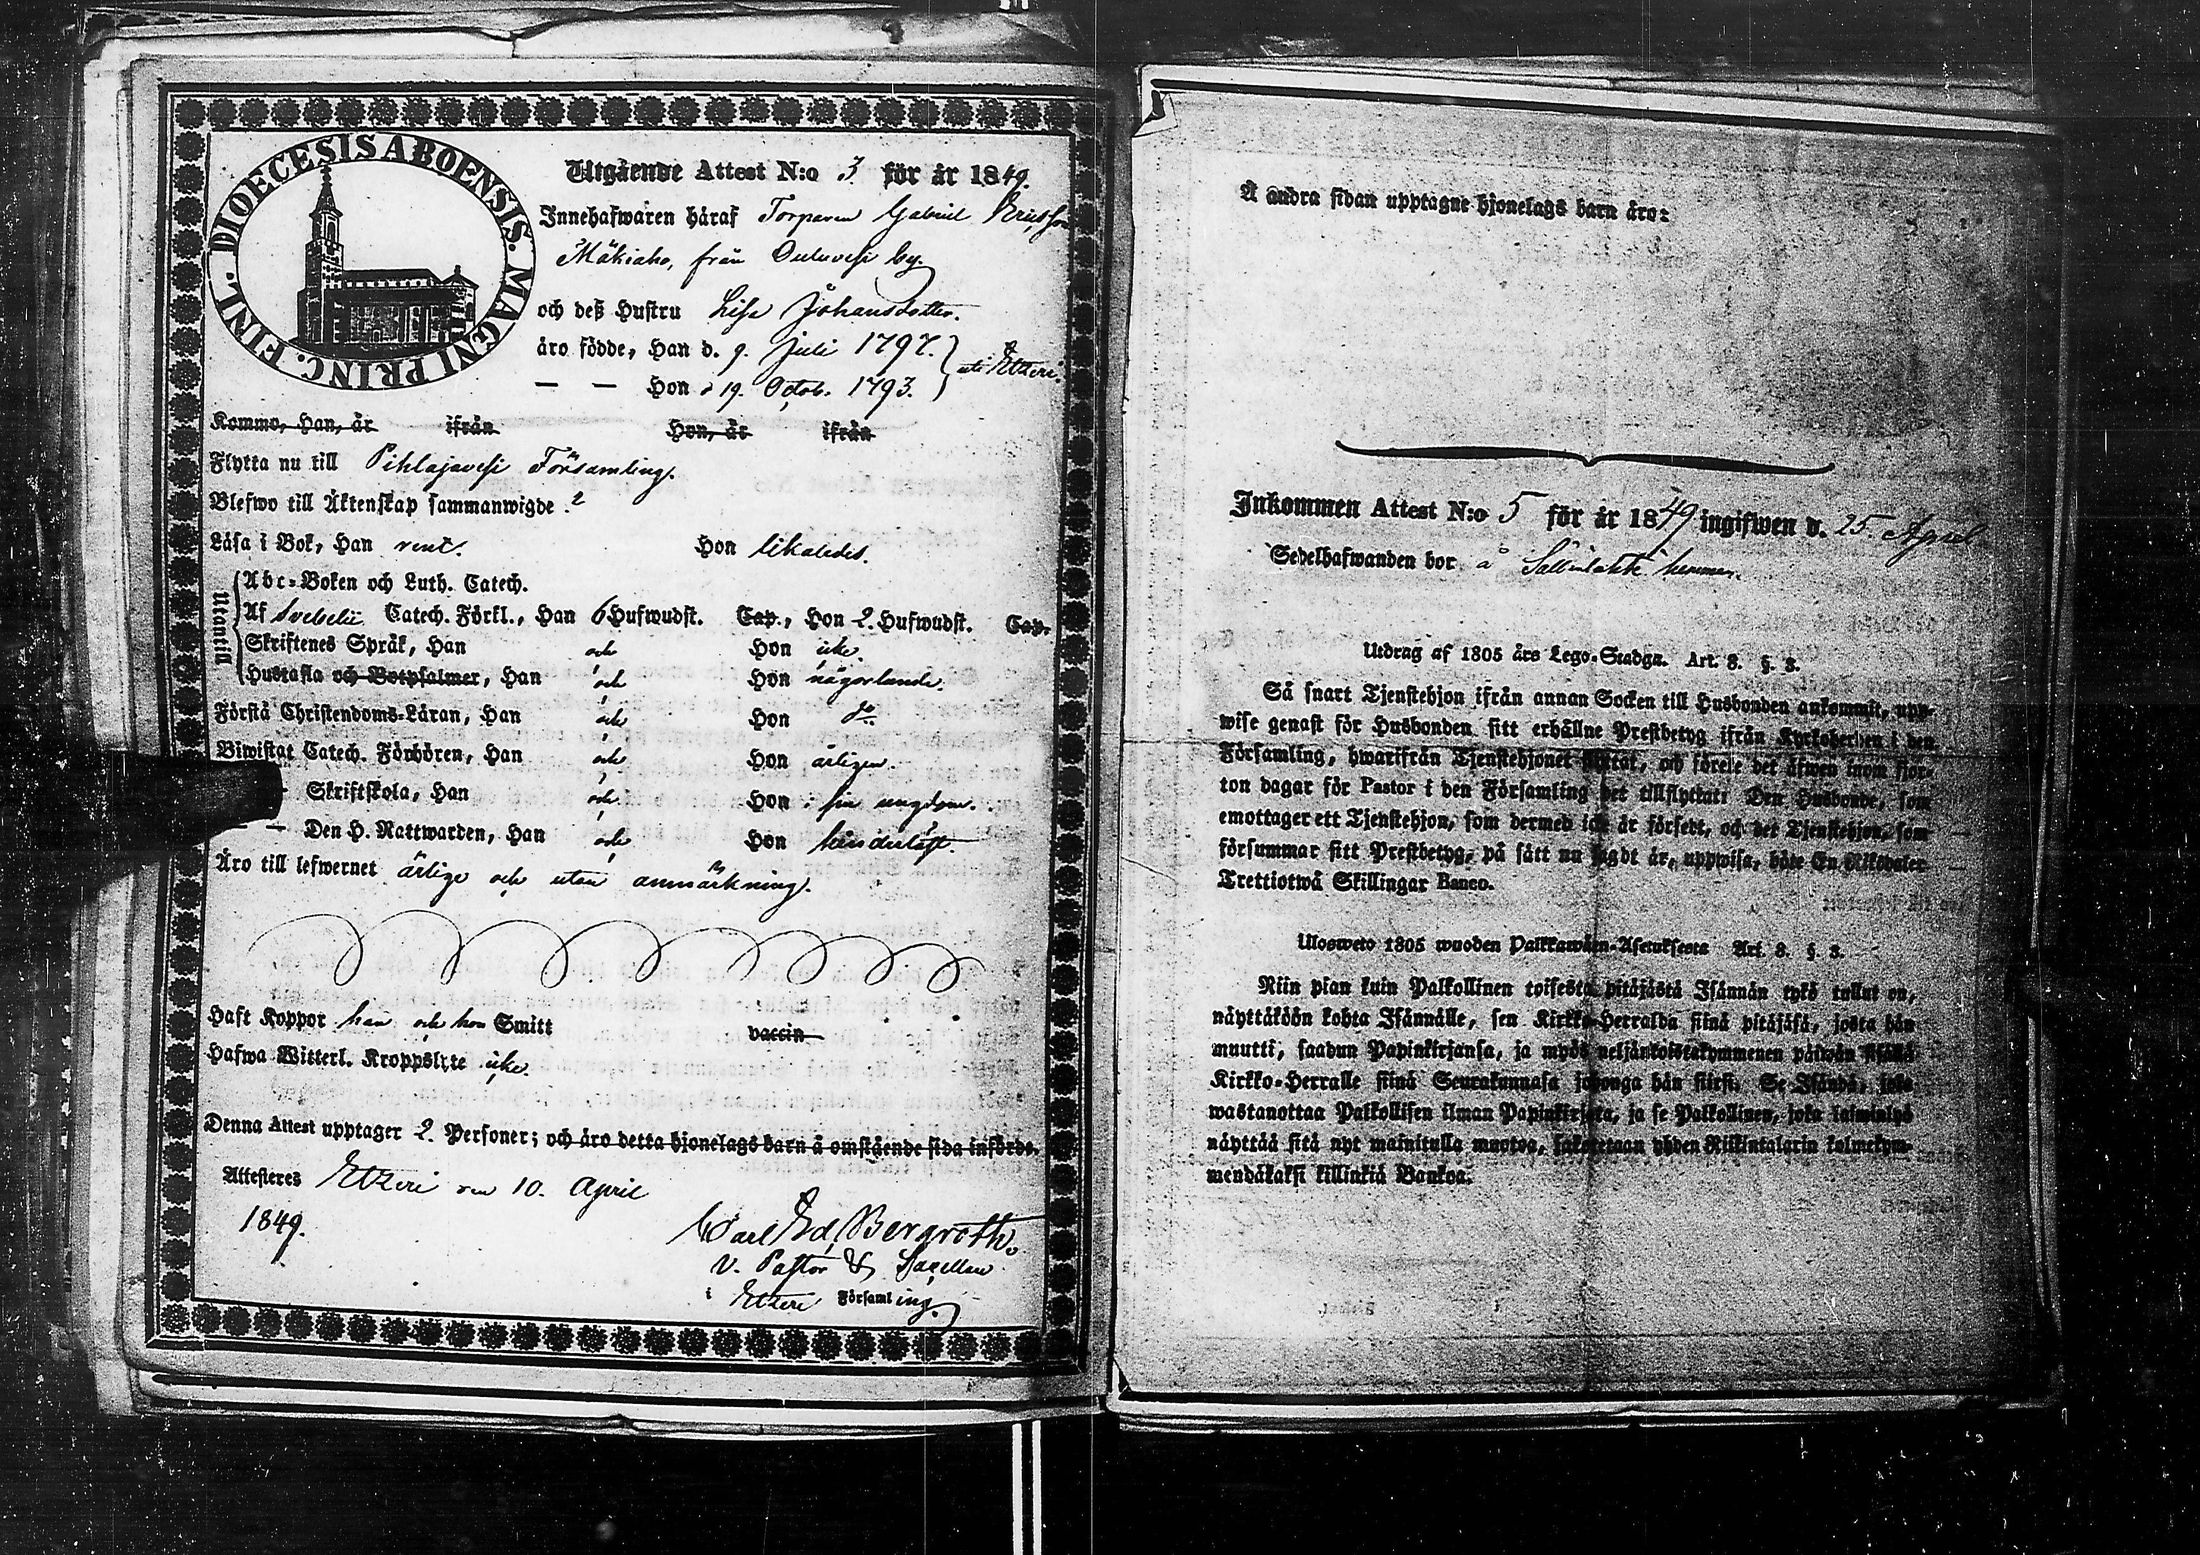 DIOECESIS ABOENSIS. MAGNI PRINC. FINL.
Utgående Attest N:o 3. för år 1849.
Innehafwaren häraf Torparen Gabriel Ericsson
Mäkiaho, från Ouluvesi by.
och deß Hustru Lisa Johansdotter.
äro födde, Han d. 9. Juli 1797. } uti Etzeri.
— — Hon d 19. Octob. 1793.
Kommo, Han, år ifrån Hon, år ifrån
Flytta nu till Pihlajavesi Församling.
Blefwo till Äktenskap sammanwigde ?
Läsa i Bok, Han rent. Hon likaledes.
Utantill
Abc-Boken och Luth. Catech.
Af Svebelii Catech. Förkl., Han 6 Hufwudst. Cap., Hon 2. Hufwudst. Cap.
Skriftenes Språk, Han och Hon icke.
Hustafla och Botpsalmer, Han och Hon någorlunda.
Förstå Christendoms-Läran, Han och Hon do.
Biwistat Catech. Förhören, Han och Hon årligen.
— Skriftskola, Han och Hon i sin ungdom.
— — Den H. Nattwarden, Han och Hon
Äro till lefwernet ärlige och utan anmärkning.
Haft Koppor han och hon Smitt vaccin
Hafwa Witterl. Kroppslyte icke.
Denna Attest upptager 2. Personer; och äro detta hjonelags barn å omstående sida införde.
Attesteres Etzeri den 10. April
1849.
Carl Ed. Bergroth.
V. Pastor & Capellan
i Etzeri Församling.
Å andra sidan upptagne hjonelags barn äro:
Inkommen Attest N:o 5 för år 1849 ingifwen d. 25. April
Sedelhafwanden bor å hemman.
Utdrag af 1805 års Lego-Stadga. Art. 8. §. 3.
Så snart Tjenstehjon ifrån annan Socken till Husbonden ankommit, upp-
wise genast för Husbonden sitt erhållne Prestbetyg ifrån Kyrkoherden i den
Församling, hwarifrån Tjenstehjonet flyttat, och förete det äfwen inom fjor-
ton dagar för Pastor i den Församling det tillflyttat: Den Husbonde, som
emottager ett Tjenstehjon, som dermed icke är försedt, och det Tjenstehjon, som
försummar sitt Prestbetyg, på sätt nu sagdt är, uppwisa, böte En Riksdaler
Trettiotwå Skillingar Banco.
Ulosweto 1805 wuoden Palkkawäen-Asetuksesta Art. 8. §. 3.
Niin pian kuin Palkollinen toisesta pitäjästä Isännän tykö tullut on,
näyttäköön kohta Isännälle, sen Kirkko-Herralda siinä pitäjäsä, josta hän
muutti, saadun Papinkirjansa, ja myös neljäntoistakymmenen päiwän sisällä
Kirkko-Herralle siinä Seurakunnasa johonga hän siirsi. Se Isändä, joka
wastanottaa Palkollisen ilman Papinkirjata, ja se Palkollinen, joka laiminlyö
näyttää sitä nyt mainitulla muotoa, sakotetaan yhden Riikintalarin kolmekym-
mendäkaksi killinkiä Bankoa.